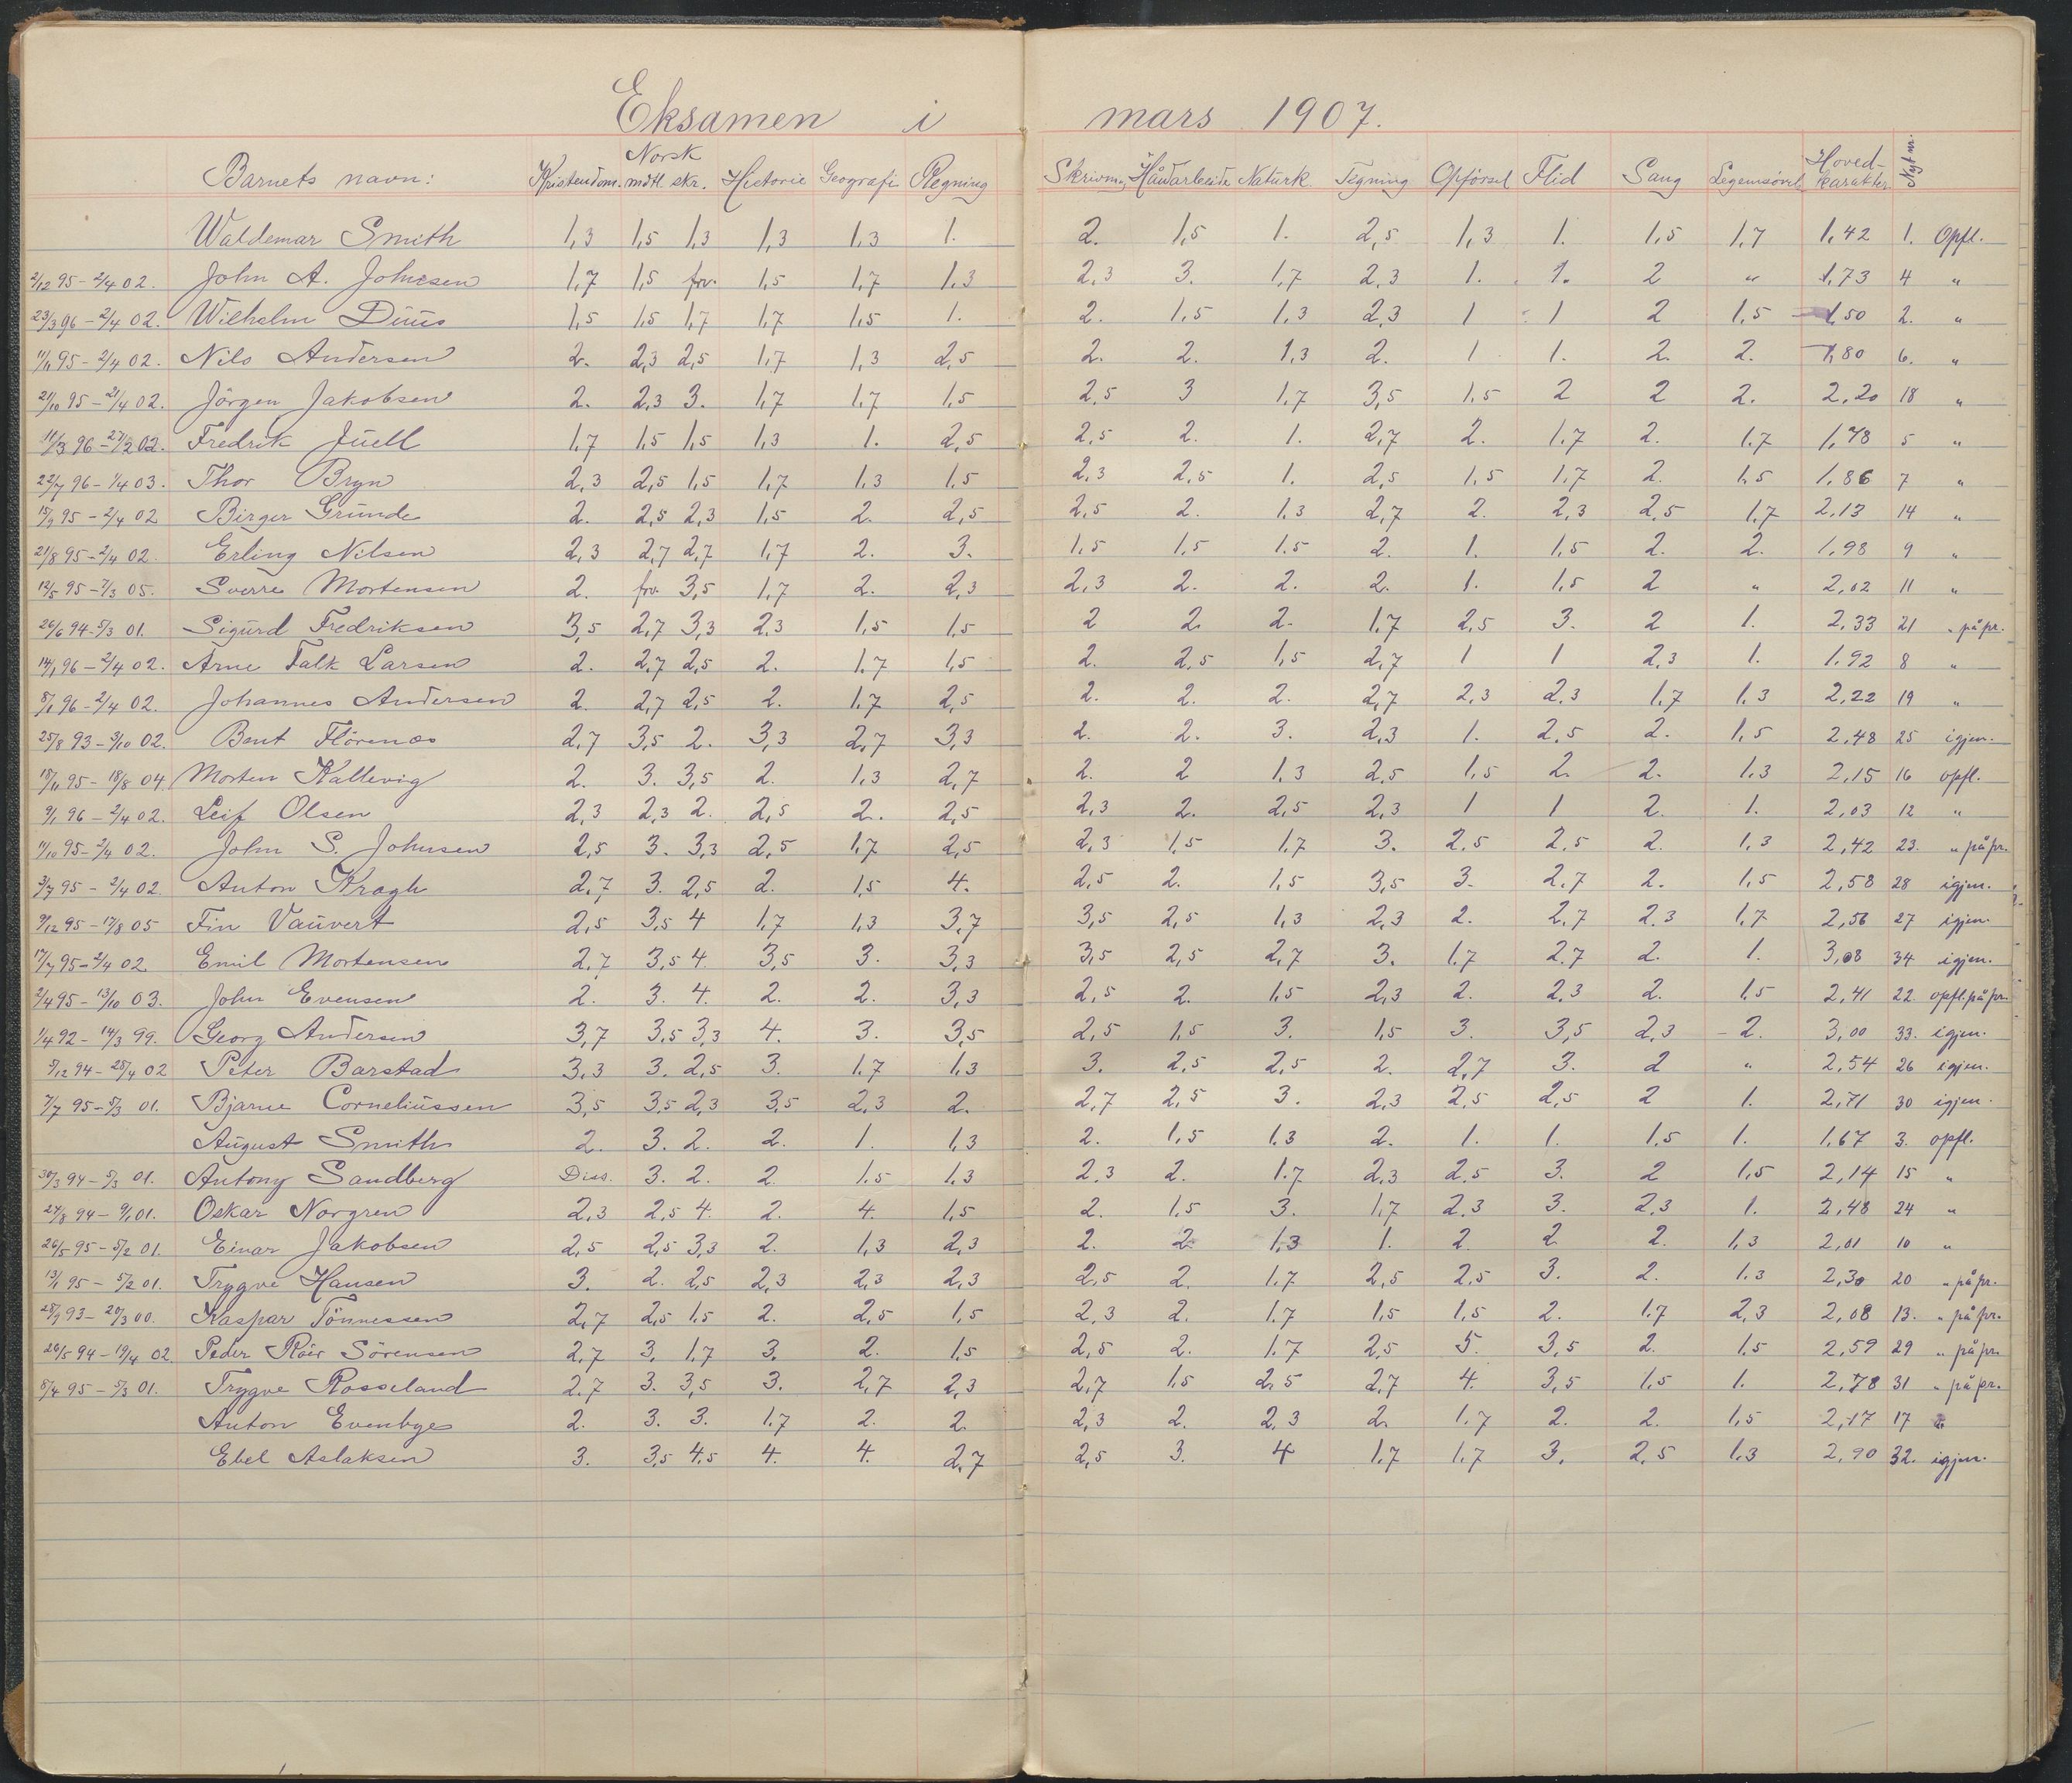 Eksamen i mars 1907.
Barnets navn: Kristendom. Norsk mdtl. skr. Historie Geografi Regning Skrivn. Håndarbeide Naturk. Tegning Opförsel Flid Sang Legemsövel. Hoved-karakter Nyt nr.
Waldemar Smith 1,3 1,5 1,3 1,3 1,3 1. 2. 1,5 1. 2,5 1,3 1. 1,5 1,7 1,42 1. Opfl.
2/12 95 - 2/4 02. John A. Johnsen 1,7 1,5 frv. 1,5 1,7 1,3 2,3 3. 1,7 2,3 1. 1. 2 " 1,73 4 "
23/3 96 - 2/4 02. Wilhelm Duus 1,5 1,5 1,7 1,7 1,5 1. 2. 1,5 1,3 2,3 1 1 2 1,5 1,50 2. "
11/11 95 - 2/4 02. Nils Andersen 2. 2,3 2,5 1,7 1,3 2,5 2. 2. 1,3 2. 1 1. 2. 2. 1,80 6. "
21/10 95 - 21/4 02. Jörgen Jakobsen 2. 2,3 3. 1,7 1,7 1,5 2,5 3 1,7 3,5 1,5 2 2 2. 2,20 18 "
11/3 96 - 27/2 02. Fredrik Juell 1,7 1,5 1,5 1,3 1. 2,5 2,5 2. 1. 2,7 2. 1,7 2. 1,7 1,78 5 "
22/7 96 - 1/4 03. Thor Bryn 2,3 2,5 1,5 1,7 1,3 1,5 2,3 2,5 1. 2,5 1,5 1,7 2. 1,5 1,86 7 "
15/9 95 - 2/4 02 Birger Grunde 2. 2,5 2,3 1,5 2. 2,5 2,5 2. 1,3 2,7 2. 2,3 2,5 1,7 2,13 14 "
21/8 95 - 2/4 02. Erling Nilsen 2,3 2,7 2,7 1,7 2. 3. 1,5 1,5 1.5 2. 1. 1,5 2. 2. 1,98 9 "
12/5 95 - 7/3 05. Sverre Mortensen 2. frv. 3,5 1,7 2. 2,3 2,3 2. 2. 2. 1. 1,5 2 " 2,02 11 "
26/6 94 - 5/3 01. Sigurd Fredriksen 3,5 2,7 3,3 2,3 1,5 1,5 2 2. 2. 1,7 2,5 3. 2 1. 2,33 21 " på pr.
14/1 96 - 2/4 02. Arne Falk Larsen 2. 2,7 2,5 2. 1,7 1,5 2. 2,5 1,5 2,7 1 1 2,3 1. 1,92 8 "
8/1 96 - 2/4 02. Johannes Andersen 2. 2,7 2,5 2. 1,7 2,5 2. 2. 2. 2,7 2,3 2,3 1,7 1,3 2,22 19 "
25/8 93 - 3/10 02. Bent Flörenæs 2,7 3,5 2. 3,3 2,7 3,3 2. 2. 3. 2,3 1. 2,5 2. 1,5 2,48 25 igjen.
18/11 95 - 18/8 04. Morten Kallevig 2. 3. 3,5 2. 1,3 2,7 2. 2 1,3 2,5 1,5 2. 2. 1,3 2,15 16 opfl.
9/1 96 - 2/4 02. Leif Olsen 2,3 2,3 2. 2,5 2. 2,5 2,3 2. 2,5 2,3 1 1 2. 1. 2,03 12 "
11/10 95 - 2/4 02. John S. Johnsen 2,5 3. 3,3 2,5 1,7 2,5 2,3 1,5 1,7 3. 2,5 2,5 2. 1,3 2,42 23. " på pr.
3/7 95 - 2/4 02 Anton Kragh 2,7 3. 2,5 2. 1,5 4. 2,5 2. 1,5 3,5 3. 2,7 2. 1,5 2,58 28 igjen.
9/12 95 - 17/8 05 Fin Vauvert 2,5 3,5 4 1,7 1,3 3,7 3,5 2,5 1,3 2,3 2. 2,7 2,3 1,7 2,56 27 igjen.
17/7 95 - 2/4 02 Emil Mortensen 2,7 3,5 4. 3,5 3. 3,3 3,5 2,5 2,7 3. 1.7 2.7 2. 1. 3,08 34 igjen.
2/4 95 - 13/10 03. John Evensen 2. 3. 4. 2. 2. 3,3 2,5 2. 1,5 2,3 2. 2,3 2. 1,5 2,41 22. opfl. på pr.
1/4 92 - 14/3 99. Georg Andersen 3,7 3,5 3,3 4. 3. 3,5 2,5 1,5 3. 1,5 3. 3,5 2,3 2. 3,00 33. igjen.
9/12 94 - 28/4 02 Peter Barstad 3,3 3. 2,5 3. 1,7 1,3 3. 2,5 2,5 2. 2,7 3. 2 " 2,54 26 igjen.
7/7 95 - 5/3 01. Bjarne Corneliussen 3,5 3,5 2,3 3,5 2,3 2. 2,7 2,5 3. 2,3 2,5 2,5 2 1. 2,71 30 igjen.
August Smith 2. 3. 2. 2. 1. 1,3 2. 1,5 1.3 2. 1. 1. 1.5 1. 1,67 3. opfl.
30/3 94 - 5/3 01. Antony Sandberg Diss. 3. 2. 2. 1.5 1.3 2.3 2. 1.7 2,3 2.5 3. 2 1,5 2,14 15 "
24/8 94 - 9/1 01. Oskar Norgren 2,3 2,5 4. 2. 4. 1,5 2. 1,5 3. 1,7 2,3 3. 2,3 1. 2,48 24 "
26/5 95 - 5/2 01. Einar Jakobsen 2,5 2,5 3,3 2. 1,3 2,3 2. 2. 1,3 1. 2. 2 2. 1,3 2,01 10 "
13/1 95 - 5/2 01. Trygve Hansen 3. 2. 2,5 2,3 2,3 2,3 2,5 2. 1,7 2,5 2,5 3. 2. 1.3 2,30 20 " på pr.
28/9 93 - 20/3 00. Kaspar Tönnessen 2,7 2,5 1.5 2. 2,5 1,5 2,3 2. 1.7 1,5 1,5 2. 1.7 2,3 2,08 13. " på pr.
26/5 94 - 19/4 02. Peder Röer Sörensen 2,7 3. 1.7 3. 2. 1.5 2,5 2. 1.7 2,5 5. 3,5 2. 1.5 2,59 29 " på pr.
8/4 95 - 5/3 01. Trygve Rosseland 2.7 3. 3,5 3. 2,7 2,3 2,7 1.5 2.5 2,7 4. 3,5 1.5 1. 2,78 31 " på pr.
Anton Evenbye 2. 3. 3. 1.7 2. 2. 2,3 2. 2,3 2. 1.7 2. 2. 1,5 2,17 17 "
Ebel Aslaksen 3. 3,5 4.5 4. 4. 2,7 2,5 3. 4 1.7 1.7 3. 2,5 1.3 2,90 32. igjen.